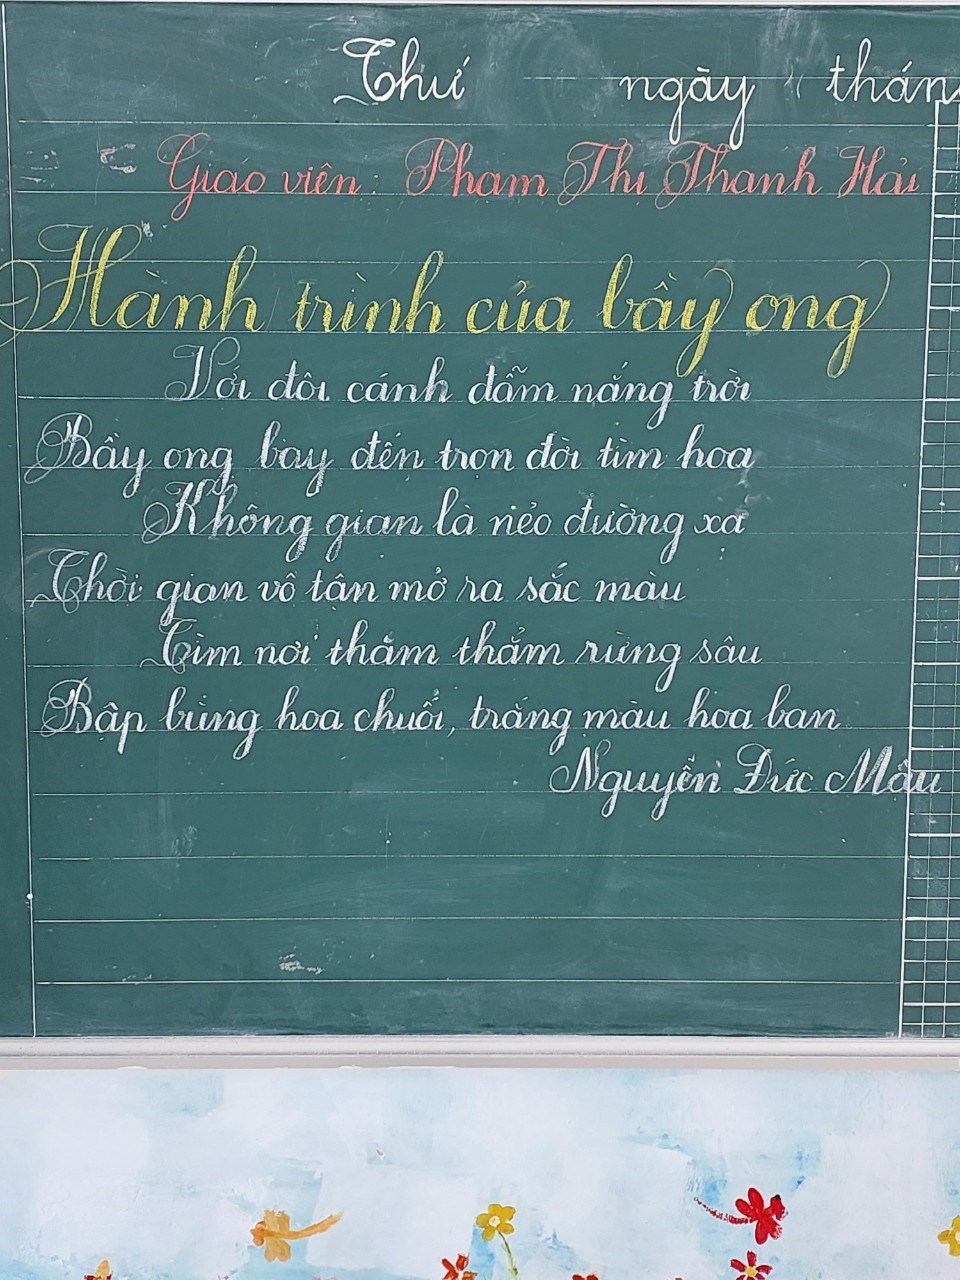 Thứ ngày thán
Giáo viên: Phạm Thị Thanh Hải
Hành trình của bầy ong
Với đôi cánh đẫm nắng trời
Bầy ong bay đến trọn đời tìm hoa
Không gian là nẻo đường xa
Thời gian vô tận mở ra sắc màu
Tìm nơi thăm thẳm rừng sâu
Bập bùng hoa chuối, trắng màu hoa ban
Nguyễn Đức Mậu